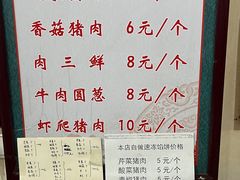 香菇猪肉 6元/个
肉三鲜 8元/个
牛肉圆葱 8元/个
虾爬猪肉 10元/个
本店自做速冻馅饼价格
芹菜猪肉 5元/个
酸菜猪肉 5元/个